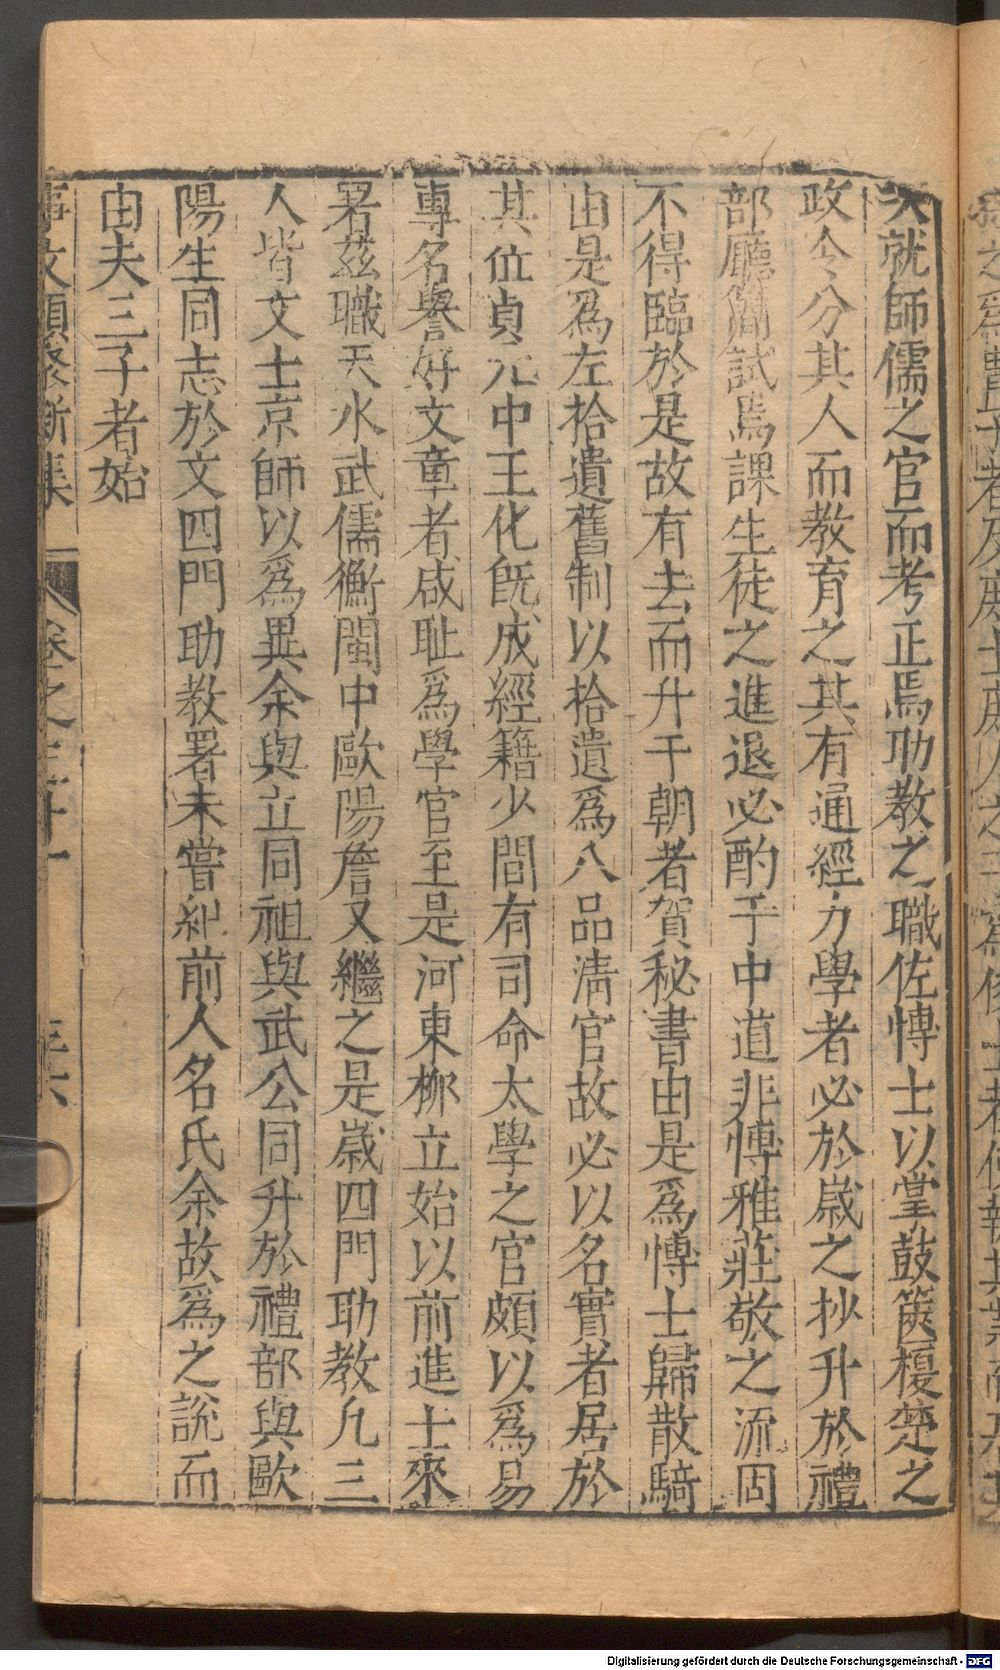 入就師儒之官而考正焉助教之職佐博士以掌鼓篋榎楚之
政令分其人而教育之其有通經力學者必於歲之抄升於禮
部廳簡試焉課生徒之進退必酌于中道非博雅莊敬之流固
不得臨於是故有去而升于朝者賀秘書由是爲博士歸散騎
由是爲左拾遺舊制以拾遺爲八品清官故必以名實者居於
其位貞元中王化旣成經籍少間有司命太學之官頗以爲易
專名譽好文章者咸耻爲學官至是河東柳立始以前進士來
署茲職天水武儒衡閩中歐陽詹又繼之是歲四門助教凡三
人皆文士京師以爲異余與立同祖與武公同升於禮部與歐
陽生同志於文四門助教署未嘗紀前人名氏余故爲之說而
由夫三子者始
事文類聚新集 卷之三十一 三六
Digitalisierung gefördert durch die Deutsche Forschungsgemeinschaft - DFG